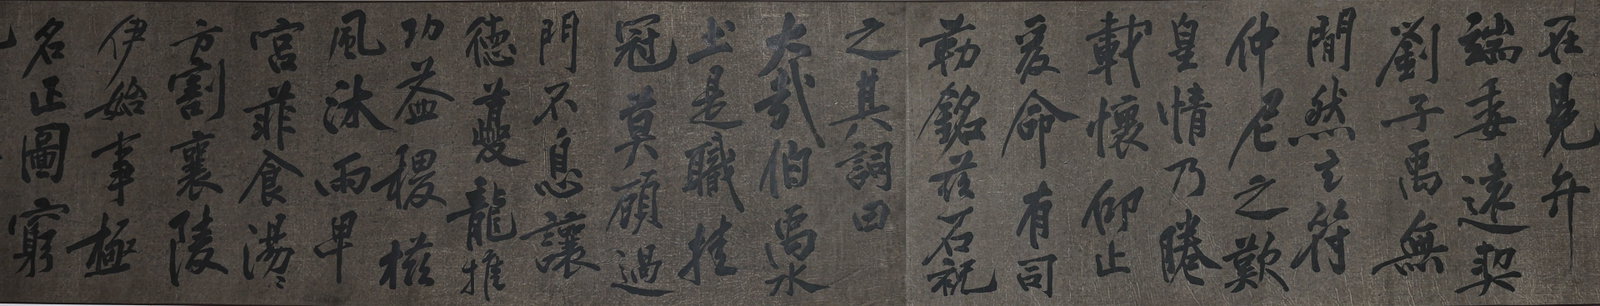 在冕弁
端委遠契
劉子禹無
閒然玄符
仲尼之歎
皇情乃睠
載懷仰止
爰命有司
勒銘茲石祝
之其詞曰
大哉伯禹水
土是職挂
冠莫顧過
門不息讓
德夔龍惟
功益稷櫛
風沐雨卑
宮菲食湯〻
方割襄陵
伊始事極
名正圖窮